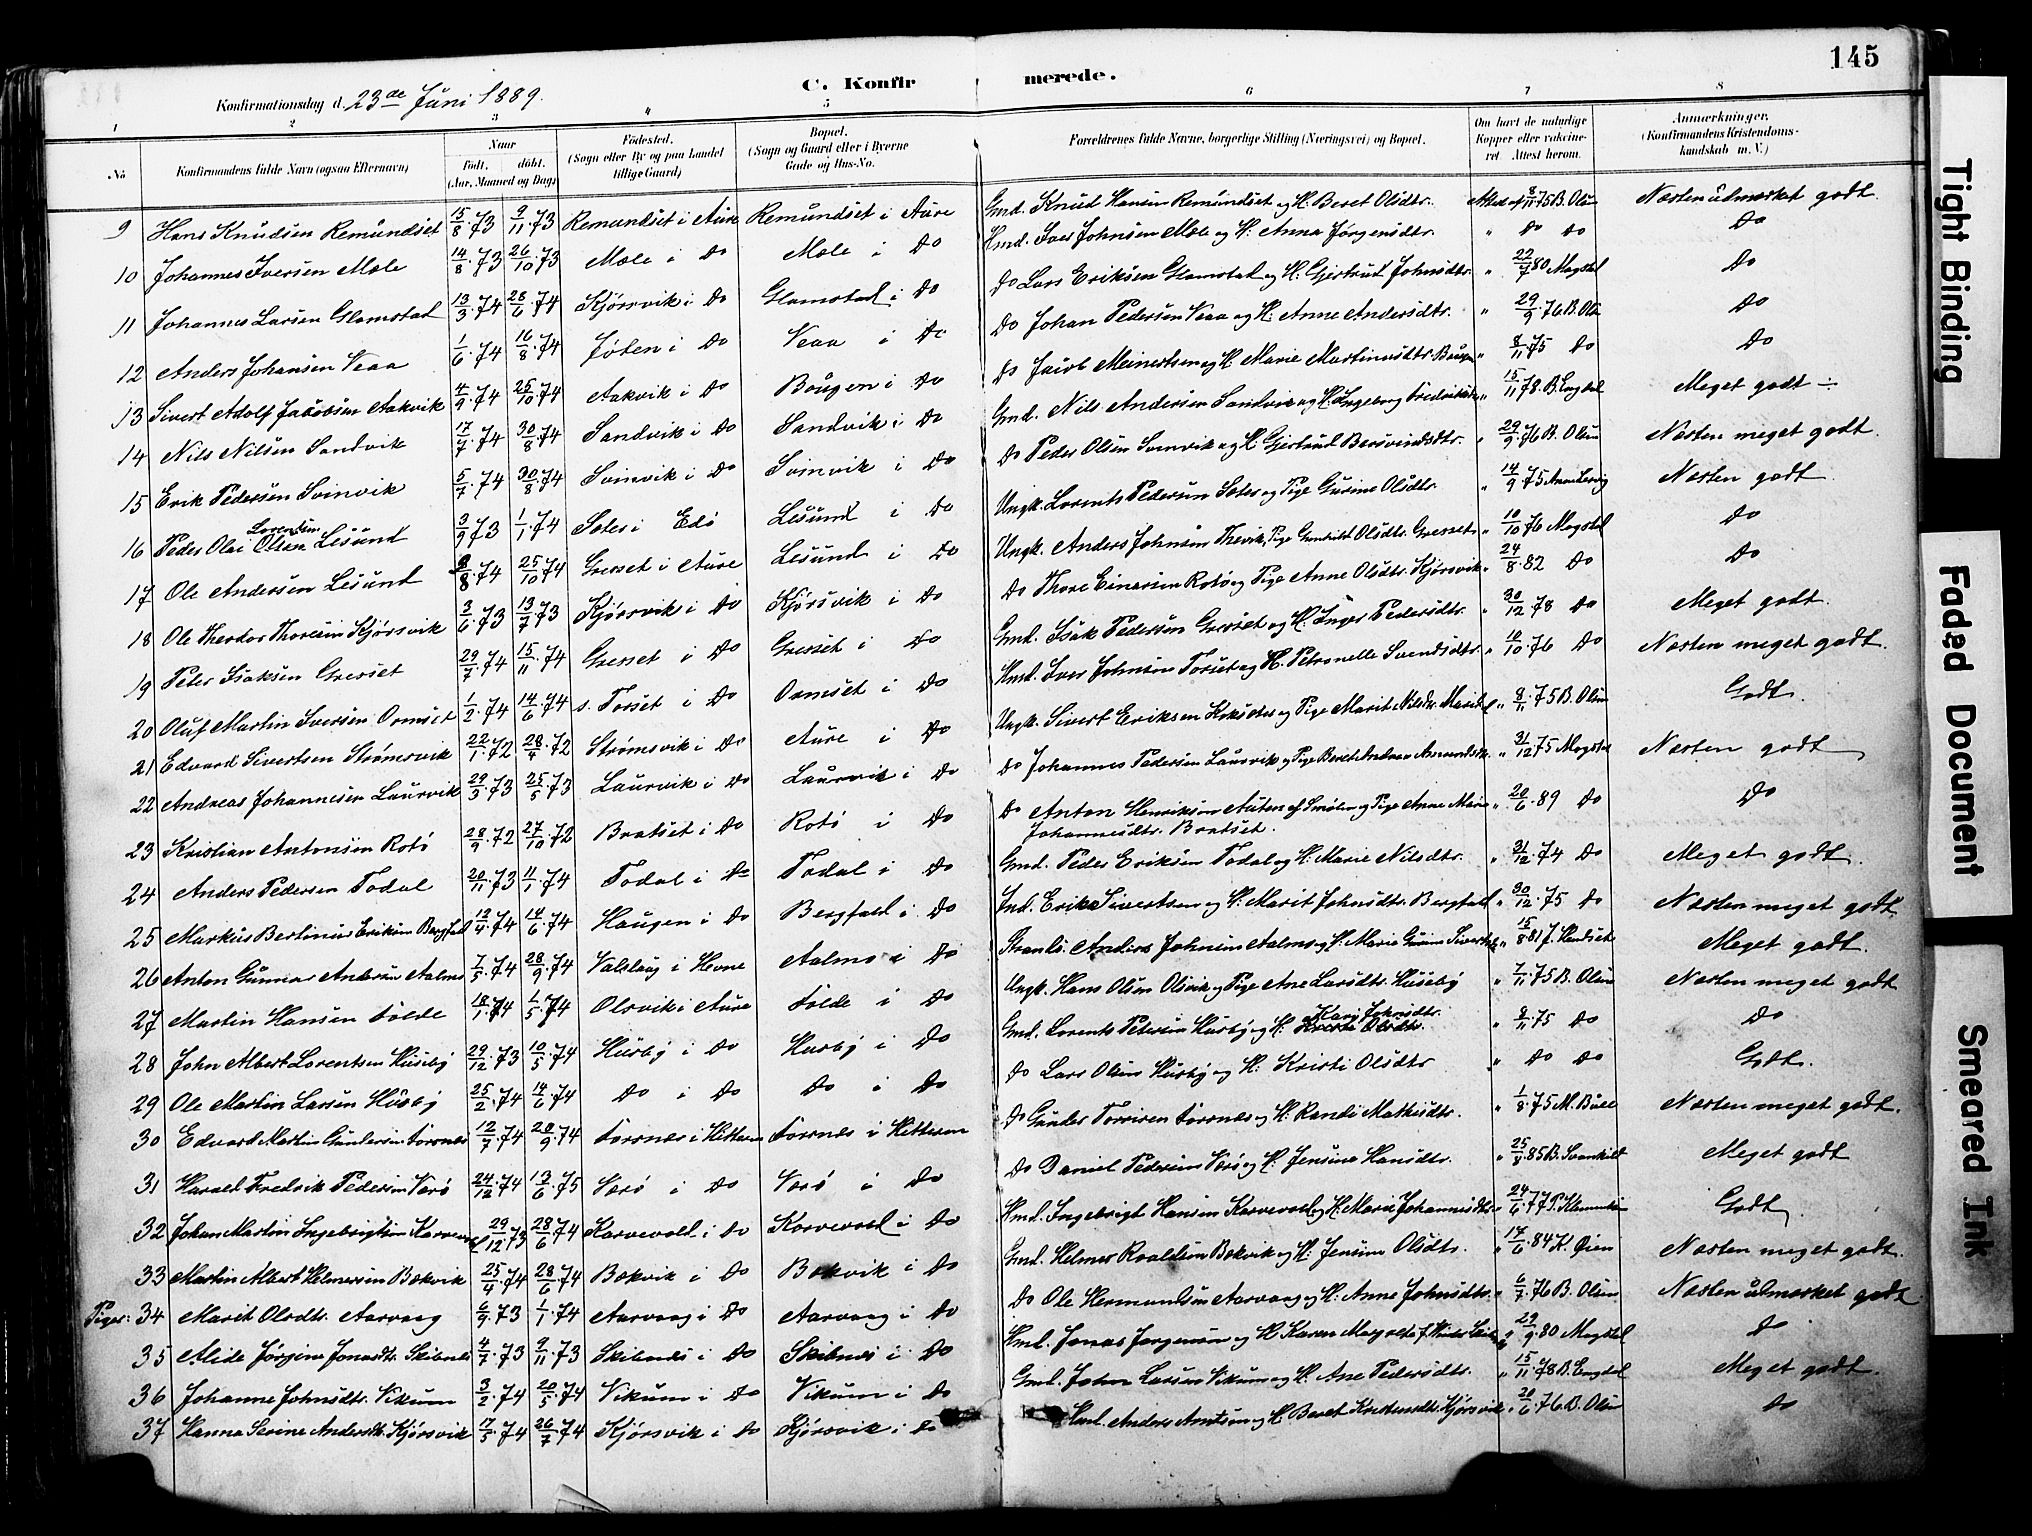 145
C. Konfirmerede.
Konfirmationsdag d. 23de Juni 1889.
1 2 3 4 5 6 7 8
No Konfirmandens fulde Navn (ogsaa Efternavn) Naar født. døbt. (Aar, Maaned og Dag) Fødested. (Sogn eller By og paa Landet tillige Gaard) Bopæl. (Sogn og Gaard eller i Byerne Gade og Hus-No. Forældrenes fulde Navne, borgerlige Stilling (Næringsvei) og Bopæl. Om havt de naturlige Kopper eller vaccineret. Attest herom. Anmærkninger. (Konfirmandens Kristendomskundskab m. V.)
9 Hans Knudsen Remundset 15/8.73 9/11.73 Remundset i Aure Remundset i Aure Gmd. Knud Hansen Remundset og H. Beret Olsdtr. Attest af 8/11 75 B. Olsen Næsten udmærket godt.
10 Johannes Iversen Mæle 14/8.73 26/10.73 Mæle i Do Mæle i Do Hmd. Iver Johnsen Mæle og H. Anna Jørgensdtr. " Do Do Do
11 Johannes Larsen Glamstad 13/3.74 28/6.74 Kjørsvik i Do Glamstad i Do Do Lars Eriksen Glamstad og H. Gjertrud Johnsdtr. " 22/7 80 Magstel Do
12 Anders Johansen Veaa 1/6.74 16/8.74 Jøten i Do Veaa i Do Do Johan Pedersen Veaa og H. Anne Andersdtr. " 29/9.76 B. Ols Do
13 Sivert Adolf Jacobsen Aakvik 4/9.74 25/10.74 Aakvik i Do Baugen i Do Do Jacob Meinertsen og H. Marie Martinusdtr. Baugen " 8/11.75 Do Do
14 Nils Nilsen Sandvik 17/7.74 30/8.74 Sandvik i Do Sandvik i Do Gmd. Nils Andersen Sandvik og H. Ingeborg Fredriksdtr. " 15/11 78 B. Engdal Meget godt ÷
15 Erik Pedersen Svinvik 5/7.74 30/8.74 Svinvik i Do Svinvik i Do Do Peder Olsen Svinvik og H. Gjertrud Bersvendsdtr. " 29/9.76 B. Olsen Næsten meget godt.
16 Peder Olai Olsen Lorentsen Lesund 3/9 73 1/1.74 Sæter i Edø Lesund i Do Ungk. Lorents Pedersen Sæter og Pige Gurine Olsdtr. " 14/9.75 Næsten godt.
17 Ole Andersen Lesund 8/8.74 25/10.74 Gresset i Aure Lesund i Do Ungk. Anders Johnsen Thevik, Pige Gunhild Olsdtr. Gresset " 10/10 76 Magstel Do
18 Ole Theodor Thoresen Kjørsvik 3/6.73 13/7.73 Kjørsvik i Do Kjørsvik i Do Do Thore Einersen Rotø og Pige Anne Olsdtr. Kjørsvik " 24/8.82 Do Do
19 Peter Isaksen Gresset 29/7.74 15/11.74 Gresset i Do Gresset i Do Gmd. Isak Pedersen Gresset og H. Inger Pedersdtr. " 30/12 78 Do Meget godt.
20 Oluf Martin Iversen Ormset 1/2.74 14/6.74 s. Torset i Do Ormset i Do Hmd. Iver Johnsen Torset og H. Petronelle Svendsdtr. " 10/10.76 Do Næsten meget godt.
21 Edvard Sivertsen Strømsvik 22/1.72 28/4.72 Strømsvik i Do Aure i Do Ungk. Sivert Eriksen og Pige Marit Nilsdtr. " 8/11.75 B. Olsen Godt.
22 Andreas Johannesen Laurvik 29/3.73 25/5.73 Laurvik i Do Laurvik i Do Do Johannes Pedersen Laurvik og Pige Beret " 31/12 75 Magstel Næsten godt
23 Kristian Antonsen Rotø 28/9.72 27/10.72 Bratset i Do Rotø i Do Do Anton Henriksen af Smølen og Pige Anne Marie Johannesdtr. Bratset. " 20/6.89 Do Do
24 Anders Pedersen Todal 20/11.73 11/1.74 Todal i Do Todal i Do Gmd. Peder Eriksen Todal og H. Marie Nilsdtr. " 31/12.74 Do Meget godt.
25 Markus Bertinus Eriksen Bergfald 12/4.74 14/6.74 Haugen i Do Bergfald i Do Ind. Erik Sivertsen og H. Marit Johnsdtr. Bergfald " 30/12.75 Do Næsten meget godt
26 Anton Gunnar Andersen Aalmo 7/5.74 28/9.74 Valslaug i Hevne Aalmo i Do Anders Johnsen Aalmo og H. Marie Gurine Sivertsd. " 15/8 81 J. Handset Meget godt.
27 Martin Hansen Solde 18/1.74 1/5.74 Olsvik i Aure Solde i Do Ungk. Hans Olsen Olsvik og Pige Ane Larsdtr. Huseby " 7/11.75 B. Olsen Næsten meget godt
28 John Albert Lorentsen Husby 29/12.73 10/5.74 Husby i Do Husby i Do Gmd. Lorents Petersen Husby og H. Kristi Olsdtr. Kari Johnsdtr. " 8/11.75 Do Do
29 Ole Martin Larsen Husby 25/2.74 14/6.74 Do i Do Do i Do Do Lars Olsen Husby og H. Kristi Olsdtr " Do Do Godt.
30 Edvard Martin Gundersen Sornes 12/7.74 20/9.74 Sornes i Hitteren Sornes i Hitteren Do Gunder Torsirsen Sornes og H. Randi Mathisdtr. " 1/8.75 M. Bull Næsten meget godt.
31 Harald Fredrik Pedersen Værø 24/12.74 13/6.75 Værø i Do Værø i Do Do Daniel Pedersen Værø og H. Jensine Hansdtr. " 25/8.85 B. Svanhild Meget godt
32 Johan Martin Ingebrigtsen Korvevold 29/12.73 28/6.74 Korvevold i Do Korvevold i Do Hmd. Ingebrigt Hansen Korvevold og H. Marie Johannesdtr. " 24/6.77 P. Godt
33 Martin Albert Helmersen Bækvik 25/4.74 28/6.74 Bækvik i Do Bækvik i Do Gmd. Helmer Roaldsen Bækvik og H. Jensine Olsdtr. " 17/6.84 K. Øien Næsten meget godt.
Piger: 34 Marit Olsdtr. Aarvaag 6/9.73 1/1.74 Aarvaag i Do Aarvaag i Do Do Ole Hermundsen Aarvaag og H. Anne Johnsdtr. " 6/7.76 B. Olsen Næsten udmærket godt
35 Alide Jørgine Jonasdtr. Skibnes 4/7.73 9/11.73 Skibnes i Do Skibnes i Do Hmd. Jonas Jørgensen og H. Karen Magreta " 29/9.80 Magstel Do
36 Johanne Johnsdtr. Vikum 3/2.74 20/5.74 Vikum i Do Vikum i Do Gmd. John Larsen Vikum og H. Ane Pedersdtr. " 15/11.78 B. Engdal Meget godt.
37 Hanna Serine Andersdtr. Kjørsvik 17/5.74 26/7.74 Kjørsvik i Do Kjørsvik i Do Hmd. Anders Arntsen og H. Beret Kristensdtr. Kjørsvik " 20/6.76 B. Olsen Do
Tight Binding
Faded Document
Smeared Ink